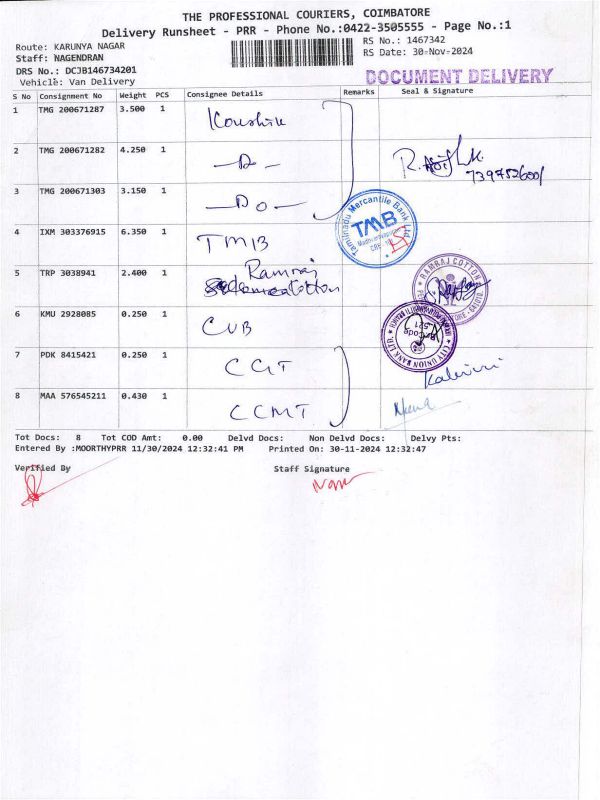 THE PROFESSIONAL COURIERS, COIMBATORE
Delivery Runsheet - PRR - Phone No.:0422-3505555 - Page No.:1
Route: KARUNYA NAGAR
RS No.: 1467342
Staff: NAGENDRAN
RS Date: 30-Nov-2024
DRS No.: DCJB146734201
Vehicle: Van Delivery
DOCUMENT DELIVERY
S No Consignment No Weight PCS Consignee Details Remarks Seal & Signature
1 TMG 200671287 3.500 1
2 TMG 200671282 4.250 1 —D—
3 TMG 200671303 3.150 1 —Do—
4 IXM 303376915 6.350 1 TMB
Tamilnadu Mercantile Bank Ltd.
TMB
5 TRP 3038941 2.400 1 Ramraj Cotton
RAMRAJ COTTON
6 KMU 2928085 0.250 1 CUB
CITY UNION BANK LTD.
7 PDK 8415421 0.250 1
8 MAA 576545211 0.430 1 CCMT
Tot Docs: 8 Tot COD Amt: 0.00 Delvd Docs: Non Delvd Docs: Delvy Pts:
Entered By :MOORTHYPRR 11/30/2024 12:32:41 PM Printed On: 30-11-2024 12:32:47
Verified By Staff Signature